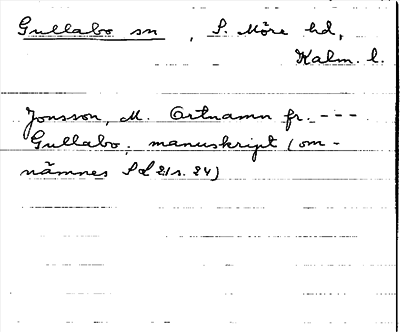 Gullabo sn, S. Möre hd,
Kalm. l.
Jonsson, M. Ortnamn fr. ---
Gullabo. manuskript (om-
nämnes Sd 21 s. 24)